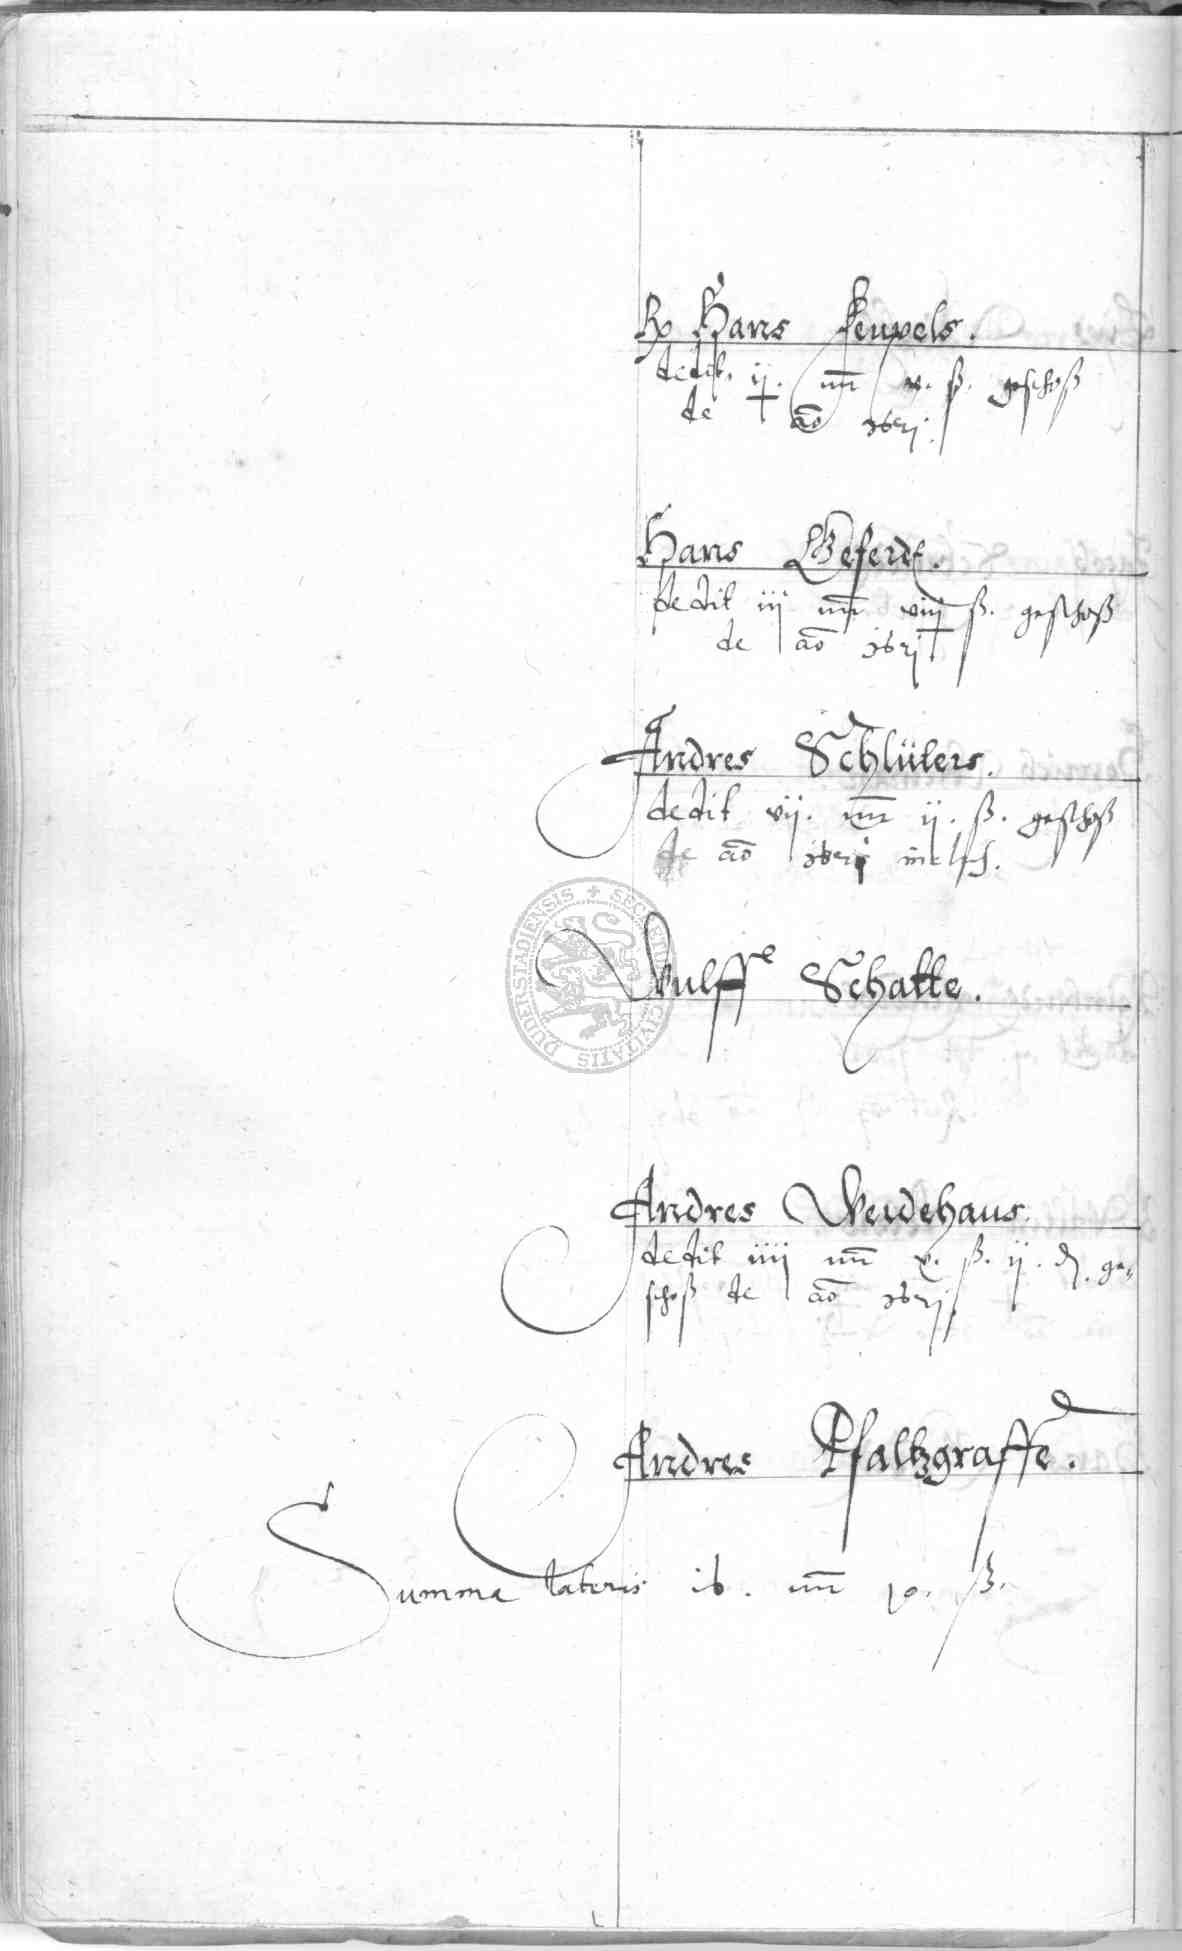 H Hans Keupels.
dedit ij. mr v. ß. geschoß
de ao
Hans Geferdt.
dedit iij mr viij ß. geschoß
de ao
Andres Schlüters.
dedit vij. mr ij. ß. geschoß
de ao
Wulff Schatte.
SECRETUM CIVITATIS DUDERSTADIENSIS
Andres Weidehaus.
dedit iiij mr v. ß. ij. d. ge-
schoß de ao
Andres Pfaltzgraffe.
Summa lateris 16. mr ß.